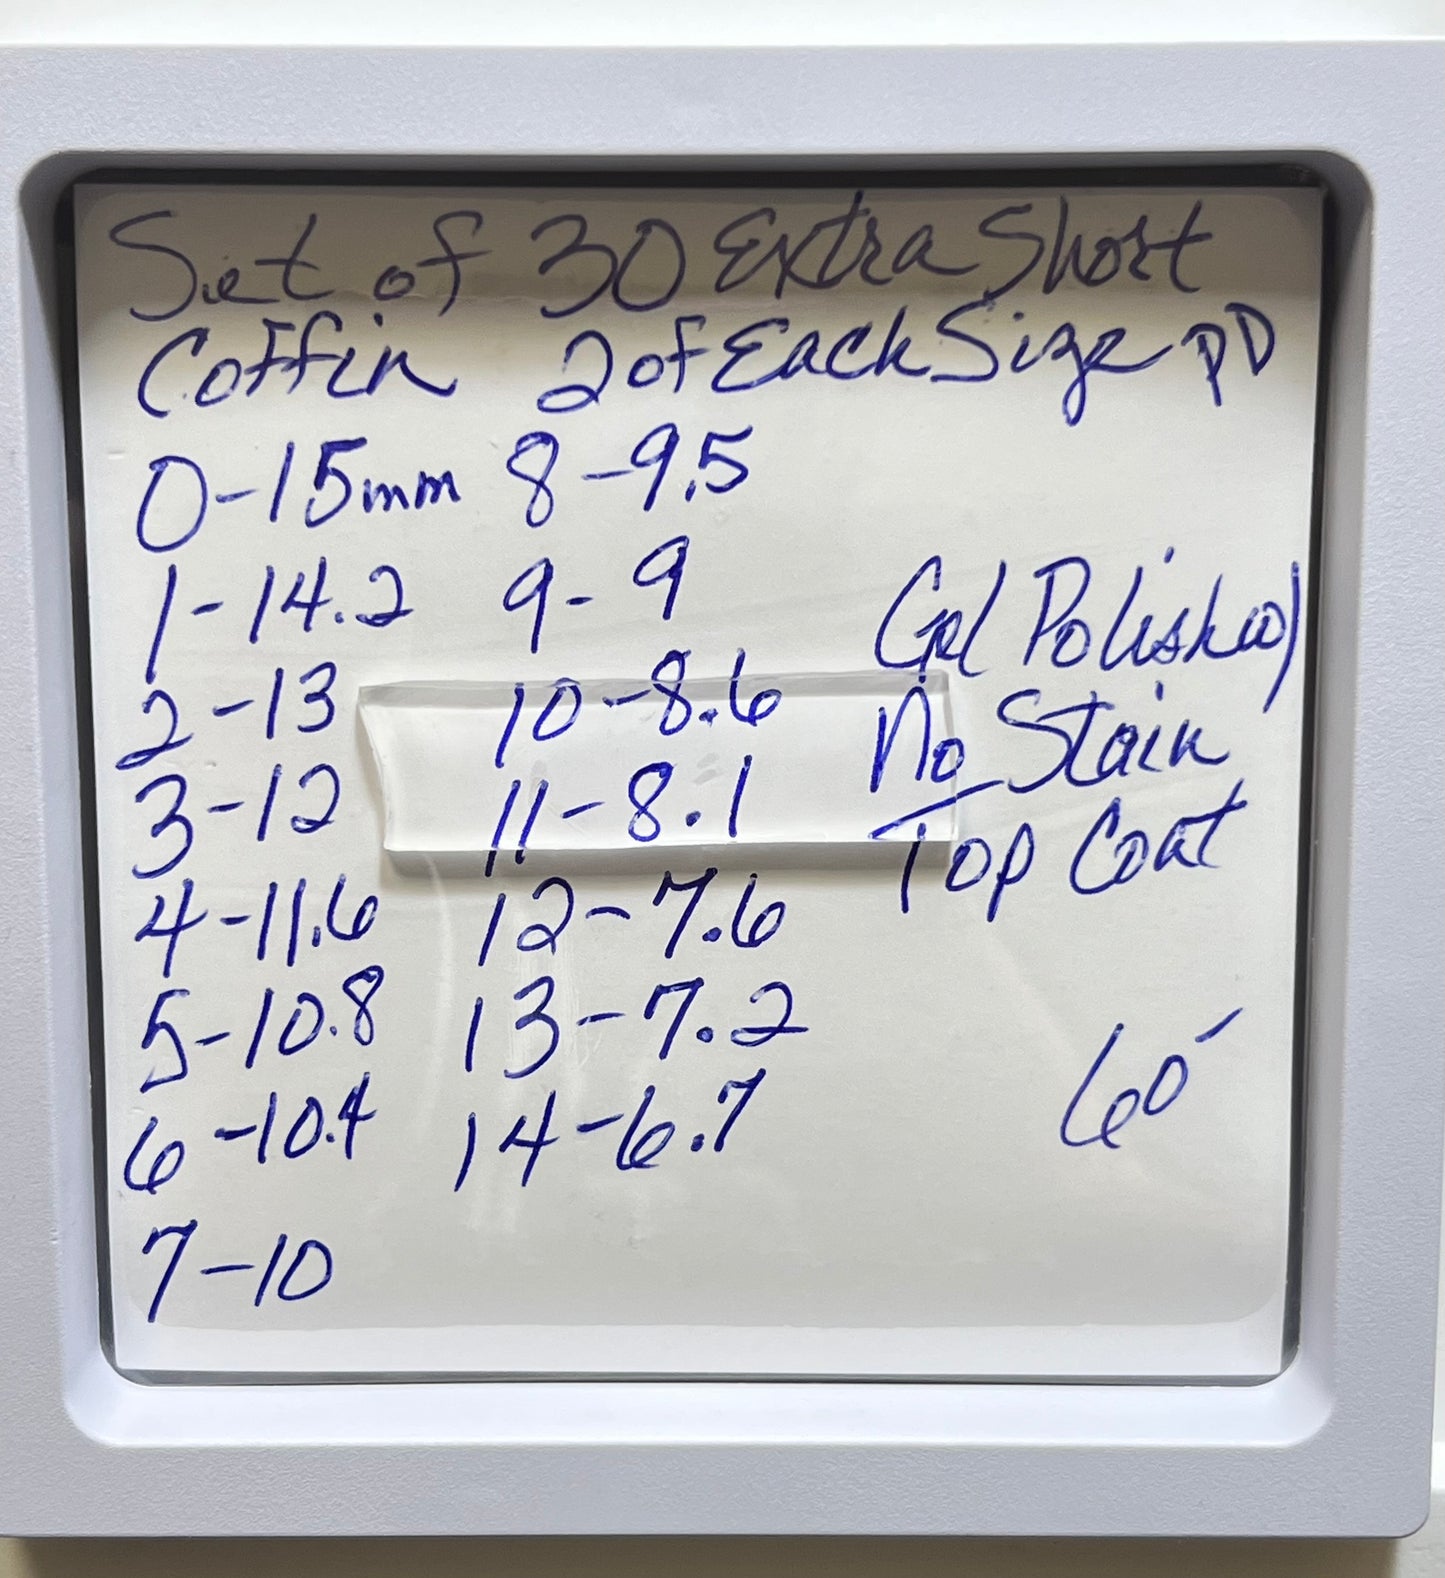 Set of 30 Extra Short
Coffin 2 of Each Size PD
0-15mm 8-9.5
1-14.2 9-9
2-13 10-8.6
3-12 11-8.1
4-11.6 12-7.6
5-10.8 13-7.2
6-10.4 14-6.7
7-10
Gel Polished
No Stain
Top Coat
60